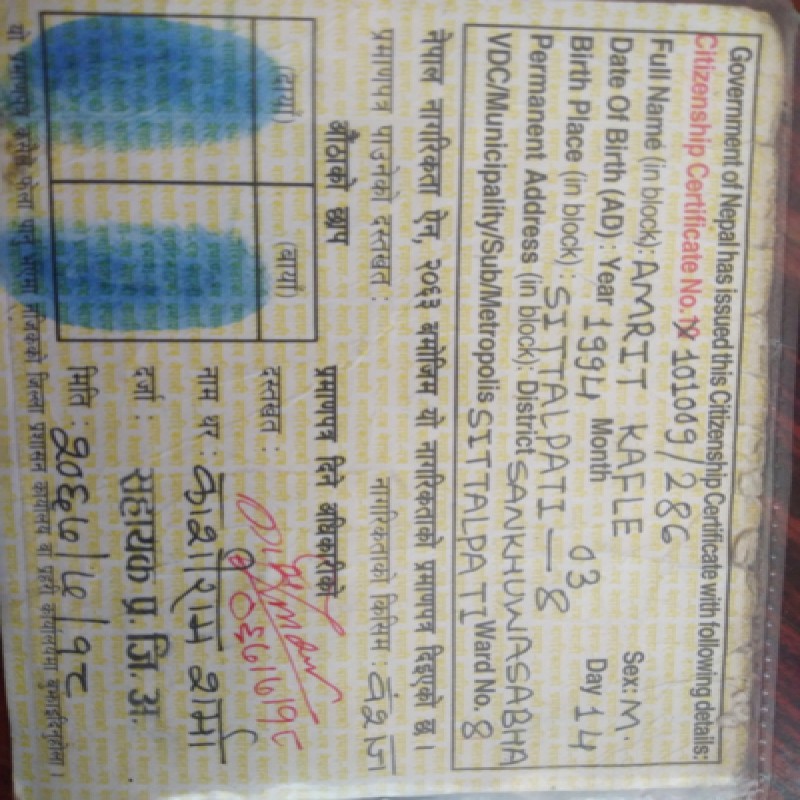 Government of Nepal has issued this Citizenship Certificate with following details:
Citizenship Certificate No. 101049/286 Sex: M.
Full Name (in block): AMRIT KAFLE
Date Of Birth (AD): Year 1994 Month 03 Day 14
Birth Place (in block): SITTALPATI - 8
Permanent Address (in block): District SANKHUWASABHA
VDC/Municipality/Sub/Metropolis SITTALPATI Ward No. 8
नेपाल नागरिकता ऐन, २०६३ बमोजिम यो नागरिकताको प्रमाणपत्र दिइएको छ ।
प्रमाणपत्र पाउनेको दस्तखत : नागरिकताको किसिम : वंशज
औंठाको छाप
(दायाँ) (बायाँ)
प्रमाणपत्र दिने अधिकारीको
दस्तखत :
नाम थर : काशीराम शर्मा
दर्जा : सहायक प्र. जि. अ.
मिति :
यो प्रमाणपत्र कसैले फेला पारे नजिकको जिल्ला प्रशासन कार्यालय वा प्रहरी कार्यालयमा बुझाइदिनुहोला ।